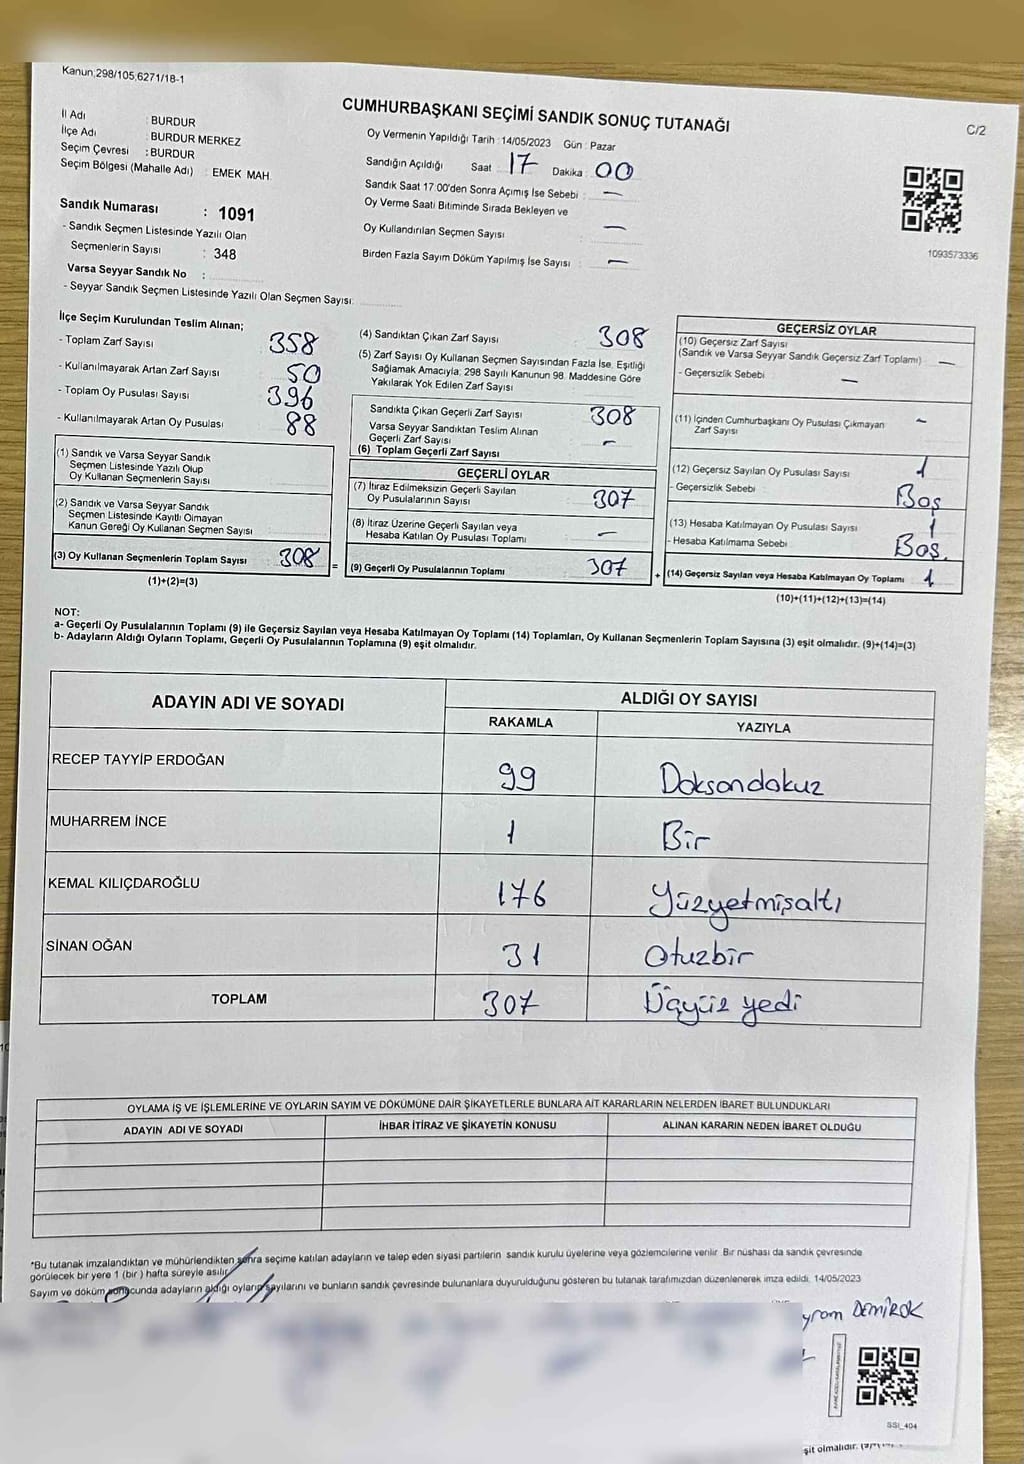 Kanun;298/105,6271/18-1
CUMHURBAŞKANI SEÇİMİ SANDIK SONUÇ TUTANAĞI
C/2
İl Adı : BURDUR
İlçe Adı : BURDUR MERKEZ
Seçim Çevresi : BURDUR
Seçim Bölgesi (Mahalle Adı) : EMEK MAH.
Sandık Numarası : 1091
- Sandık Seçmen Listesinde Yazılı Olan
Seçmenlerin Sayısı : 348
Varsa Seyyar Sandık No :
- Seyyar Sandık Seçmen Listesinde Yazılı Olan Seçmen Sayısı:
Oy Vermenin Yapıldığı Tarih : 14/05/2023 Gün : Pazar
Sandığın Açıldığı Saat : 17 Dakika : 00
Sandık Saat 17:00'den Sonra Açımış İse Sebebi : —
Oy Verme Saati Bitiminde Sırada Bekleyen ve
Oy Kullandırılan Seçmen Sayısı : —
Birden Fazla Sayım Döküm Yapılmış İse Sayısı : —
1093573336
İlçe Seçim Kurulundan Teslim Alınan;
- Toplam Zarf Sayısı 358
- Kullanılmayarak Artan Zarf Sayısı 50
- Toplam Oy Pusulası Sayısı 396
- Kullanılmayarak Artan Oy Pusulası 88
(1) Sandık ve Varsa Seyyar Sandık
Seçmen Listesinde Yazılı Olup
Oy Kullanan Seçmenlerin Sayısı
(2) Sandık ve Varsa Seyyar Sandık
Seçmen Listesinde Kayıtlı Olmayan
Kanun Gereği Oy Kullanan Seçmen Sayısı
(3) Oy Kullanan Seçmenlerin Toplam Sayısı 308
(1)+(2)=(3)
=
(4) Sandıktan Çıkan Zarf Sayısı 308
(5) Zarf Sayısı Oy Kullanan Seçmen Sayısından Fazla İse, Eşitliği
Sağlamak Amacıyla; 298 Sayılı Kanunun 98. Maddesine Göre
Yakılarak Yok Edilen Zarf Sayısı
Sandıkta Çıkan Geçerli Zarf Sayısı 308
Varsa Seyyar Sandıktan Teslim Alınan
Geçerli Zarf Sayısı —
(6) Toplam Geçerli Zarf Sayısı
GEÇERLİ OYLAR
(7) İtiraz Edilmeksizin Geçerli Sayılan
Oy Pusulalarının Sayısı 307
(8) İtiraz Üzerine Geçerli Sayılan veya
Hesaba Katılan Oy Pusulası Toplamı —
(9) Geçerli Oy Pusulalarının Toplamı 307
+
GEÇERSİZ OYLAR
(10) Geçersiz Zarf Sayısı
(Sandık ve Varsa Seyyar Sandık Geçersiz Zarf Toplamı) —
- Geçersizlik Sebebi —
(11) İçinden Cumhurbaşkanı Oy Pusulası Çıkmayan —
Zarf Sayısı
(12) Geçersiz Sayılan Oy Pusulası Sayısı 1
- Geçersizlik Sebebi Boş
(13) Hesaba Katılmayan Oy Pusulası Sayısı 1
- Hesaba Katılmama Sebebi Boş.
(14) Geçersiz Sayılan veya Hesaba Katılmayan Oy Toplamı 1
(10)+(11)+(12)+(13)=(14)
NOT:
a- Geçerli Oy Pusulalarının Toplamı (9) ile Geçersiz Sayılan veya Hesaba Katılmayan Oy Toplamı (14) Toplamları, Oy Kullanan Seçmenlerin Toplam Sayısına (3) eşit olmalıdır. (9)+(14)=(3)
b- Adayların Aldığı Oyların Toplamı, Geçerli Oy Pusulalarının Toplamına (9) eşit olmalıdır.
ADAYIN ADI VE SOYADI
ALDIĞI OY SAYISI
RAKAMLA YAZIYLA
RECEP TAYYİP ERDOĞAN 99 Doksandokuz
MUHARREM İNCE 1 Bir
KEMAL KILIÇDAROĞLU 176 Yüzyetmişaltı
SİNAN OĞAN 31 Otuzbir
TOPLAM 307 Üçyüz yedi
OYLAMA İŞ VE İŞLEMLERİNE VE OYLARIN SAYIM VE DÖKÜMÜNE DAİR ŞİKAYETLERLE BUNLARA AİT KARARLARIN NELERDEN İBARET BULUNDUKLARI
ADAYIN ADI VE SOYADI İHBAR İTİRAZ VE ŞİKAYETİN KONUSU ALINAN KARARIN NEDEN İBARET OLDUĞU
*Bu tutanak imzalandıktan ve mühürlendikten sonra seçime katılan adayların ve talep eden siyasi partilerin sandık kurulu üyelerine veya gözlemcilerine verilir. Bir nüshası da sandık çevresinde
görülecek bir yere 1 (bir) hafta süreyle asılır.
Sayım ve döküm sonucunda adayların aldığı oyların sayılarını ve bunların sandık çevresinde bulunanlara duyurulduğunu gösteren bu tutanak tarafımızdan düzenlenerek imza edildi. 14/05/2023
yram DEMİROK
SSI_404
şit olmalıdır.